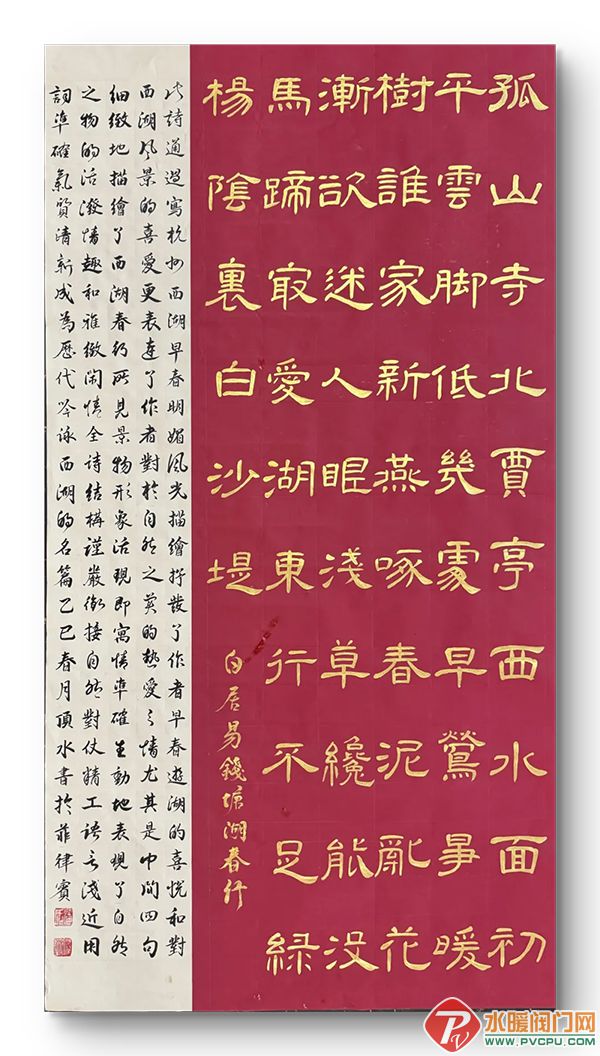 孤山寺北賈亭西水面初
平雲脚低幾處早鶯爭暖
樹誰家新燕啄春泥亂花
漸欲迷人眼淺草纔能没
馬蹄最愛湖東行不足緑
楊陰裏白沙堤
白居易錢塘湖春行
此詩通過寫杭州西湖早春明媚風光描繪抒發了作者早春遊湖的喜悅和對
西湖風景的喜愛更表達了作者對於自然之美的熱愛之情尤其是中間四句
細緻地描繪了西湖春行所見景物形象活現即寓情準確生動地表現了自然
之物的活潑情趣和雅緻閑情全詩結構謹嚴銜接自然對仗精工語言淺近用
詞準確氣質清新成為歷代吟詠西湖的名篇乙巳春月頂水書於菲律賓
水暖阀门网
WWW.PVCPU.COM